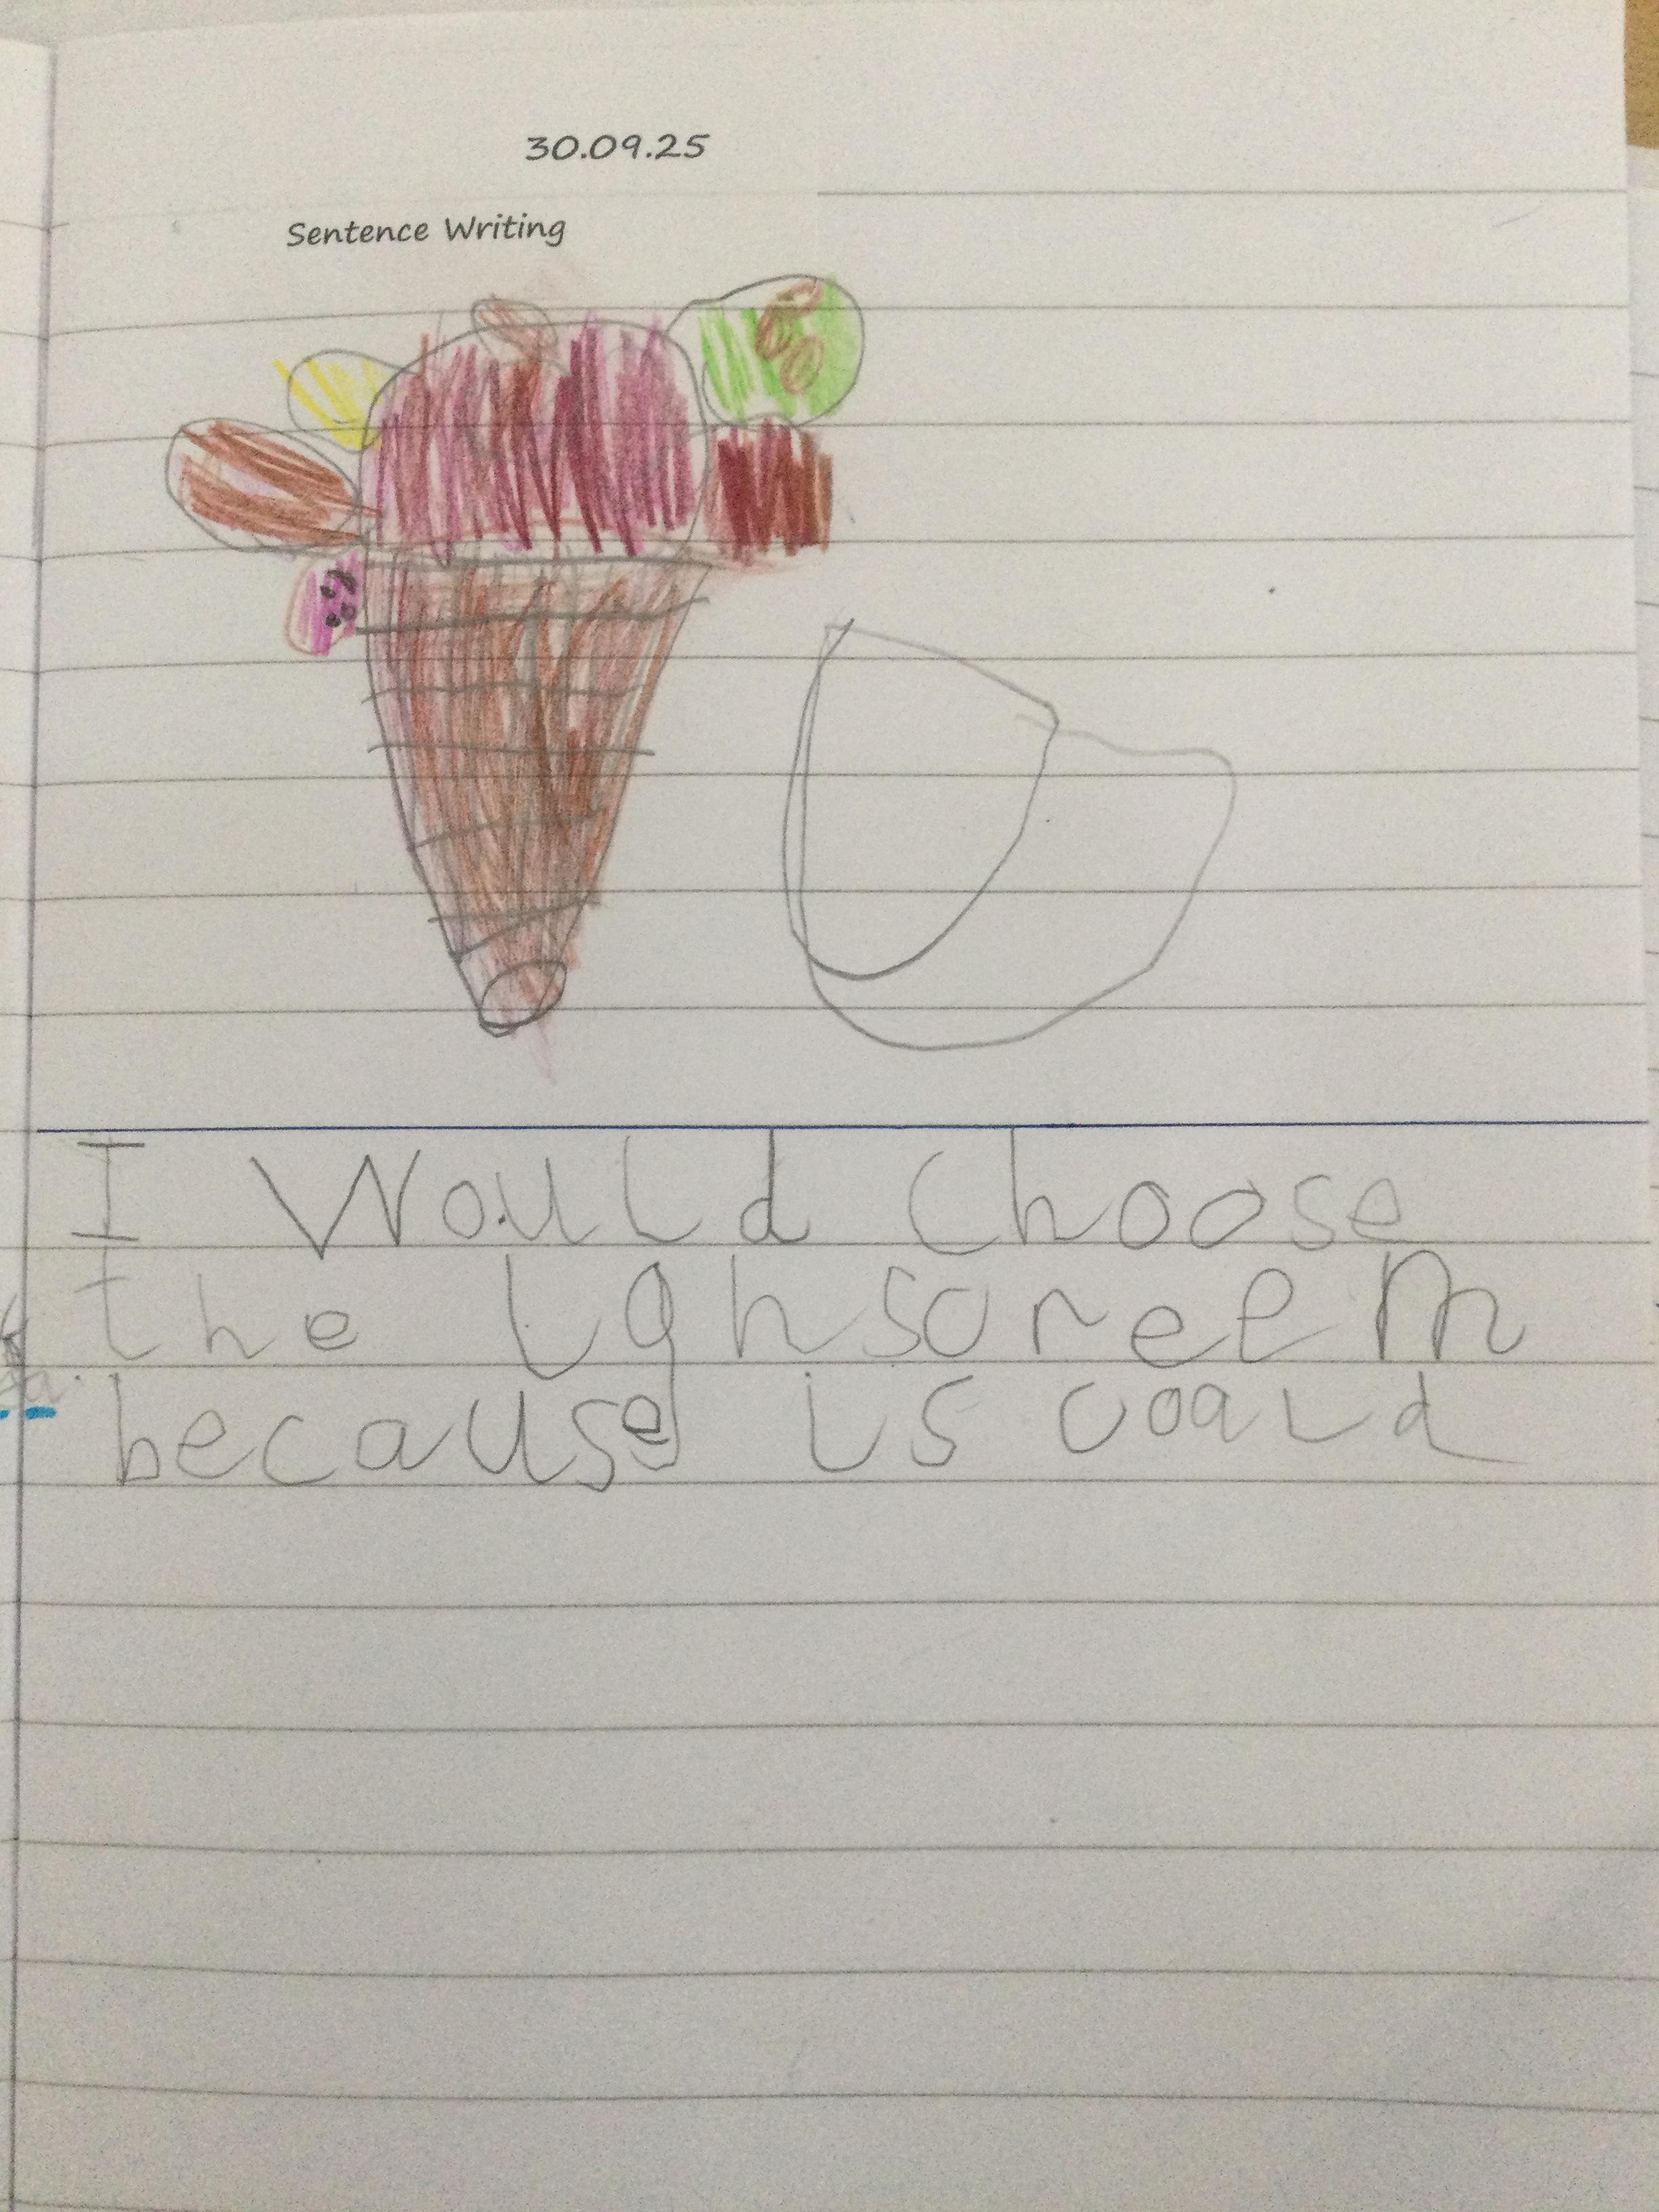 30.09.25
Sentence Writing
I Would choose
the ighscreem
because is coald